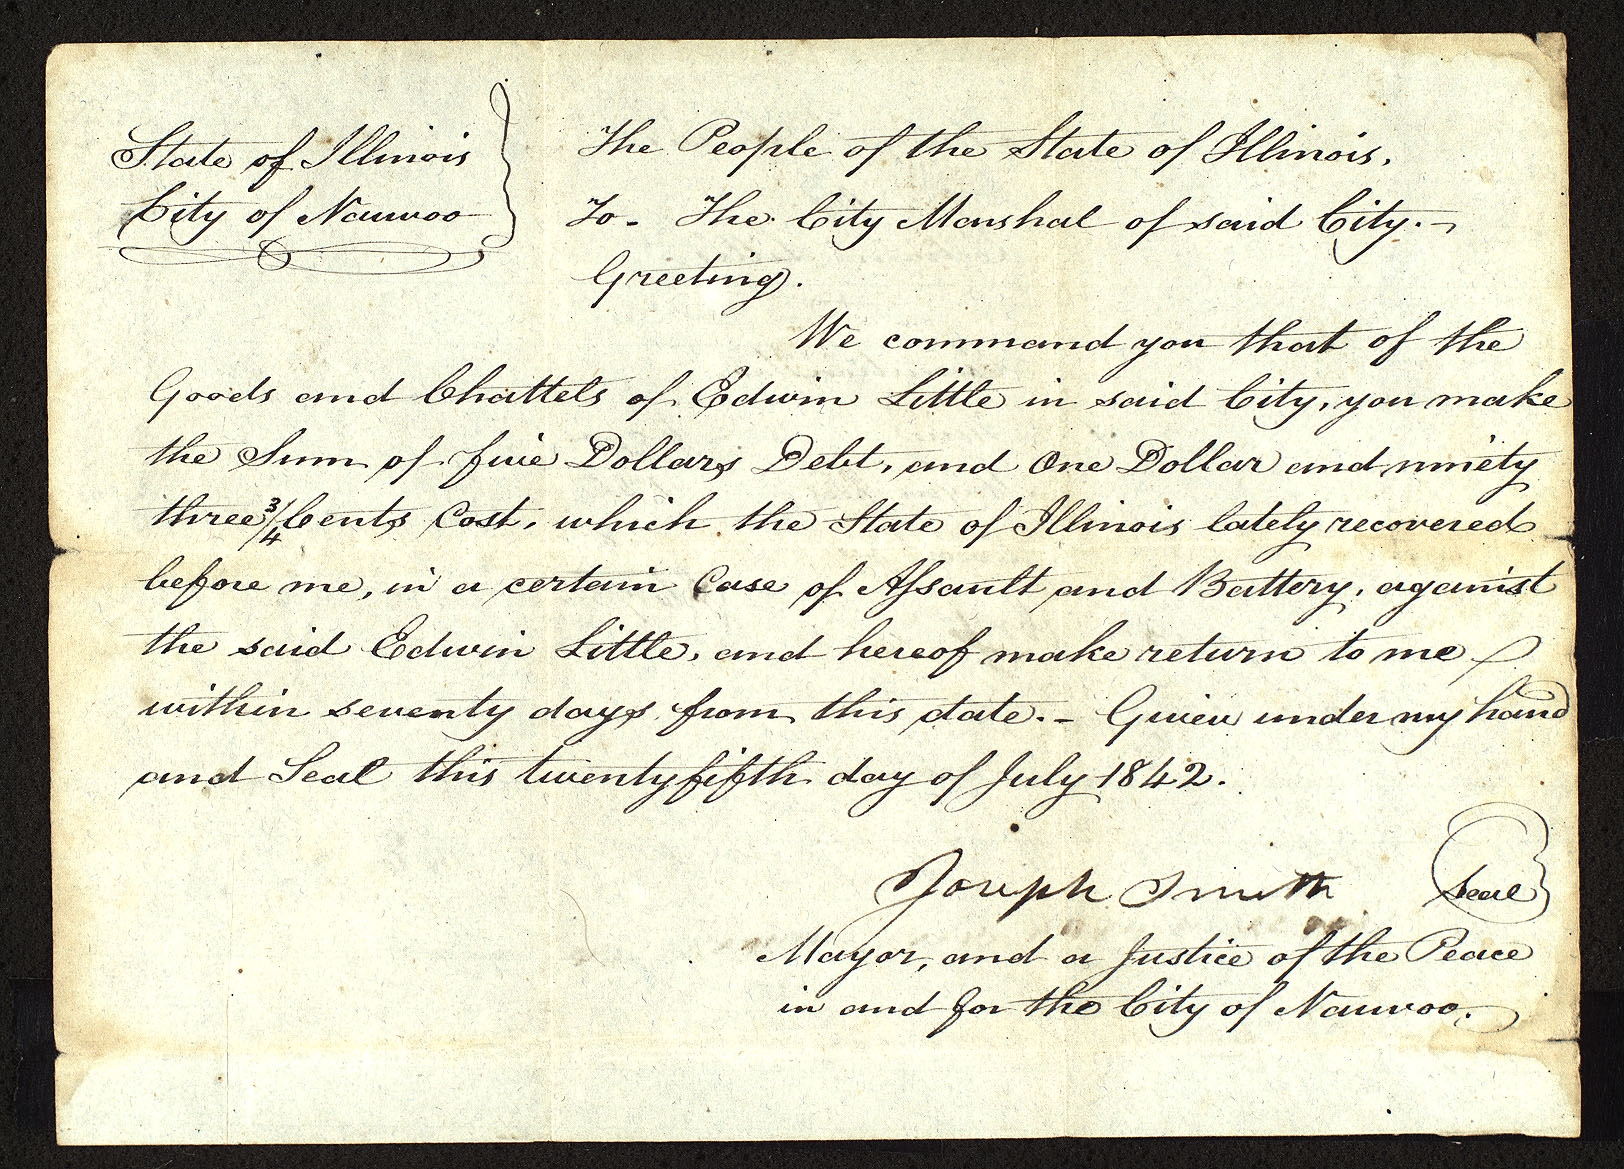 State of Illinois
City of Nauvoo
The People of the State of Illinois.
To - The City Marshal of said City. -
Greeting.
We command you that of the
Goods and Chattels of Edwin Little in said City, you make
the Sum of five Dollars Debt, and One Dollar and ninety
three 3/4 Cents Cost, which the State of Illinois lately recovered
before me, in a certain Case of Assault and Battery, against
the said Edwin Little, and hereof make return to me
within seventy days from this date. - Given under my hand
and Seal this twentyfifth day of July 1842.
Joseph Smith
Seal
Mayor, and a Justice of the Peace
in and for the City of Nauvoo.